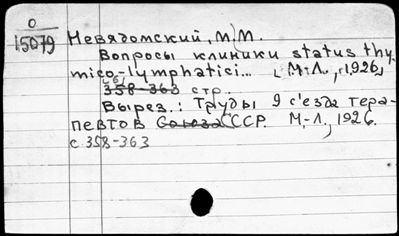 0
15079
Невядомский, М.М.
Вопросы клиники status thy-
mico-lymphatici... М.-Л., 1926,
[6] 358-363 стр.
Вырез.: Труды 9 с'езда тера-
певтов Союза СССР. М.-Л., 1926.
с 358-363